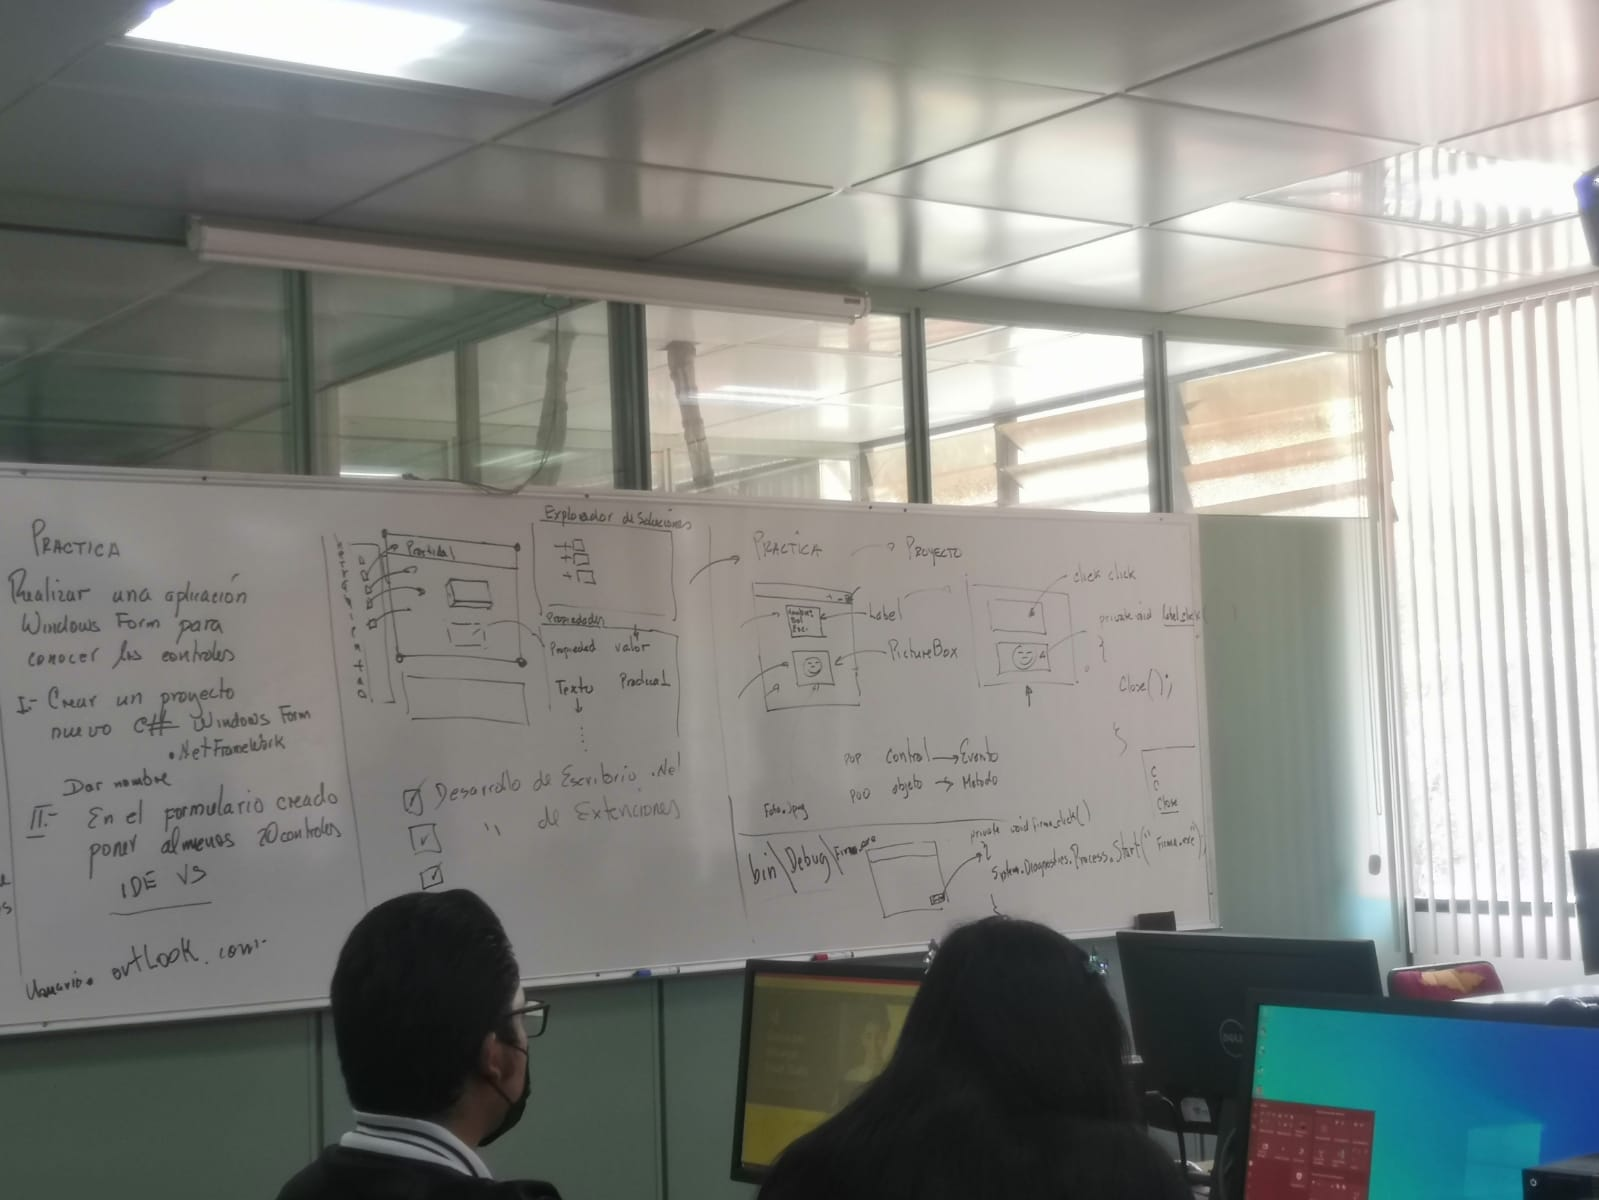 PRACTICA
Realizar una aplicación
Windows Form para
conocer los controles
I.- Crear un proyecto
nuevo C# Windows Form
.NetFrameWork
Dar nombre
II.- En el formulario creado
poner almenos 20 controles
IDE VS
Usuario. outlook.com
Practica1
Explorador de Soluciones
Propiedades
Propiedad valor
Texto Practica1
Desarrollo de Escritorio .Net
" de Extenciones
PRACTICA
PROYECTO
Label
PictureBox
click click
private void label_click
{
Close();
}
POP control → Evento
POO objeto → Metodo
Foto.jpg
bin\Debug\Firma.exe
private void firma_click()
{
System.Diagnostics.Process.Start("Firma.exe");
}
C
C
Close
DELL